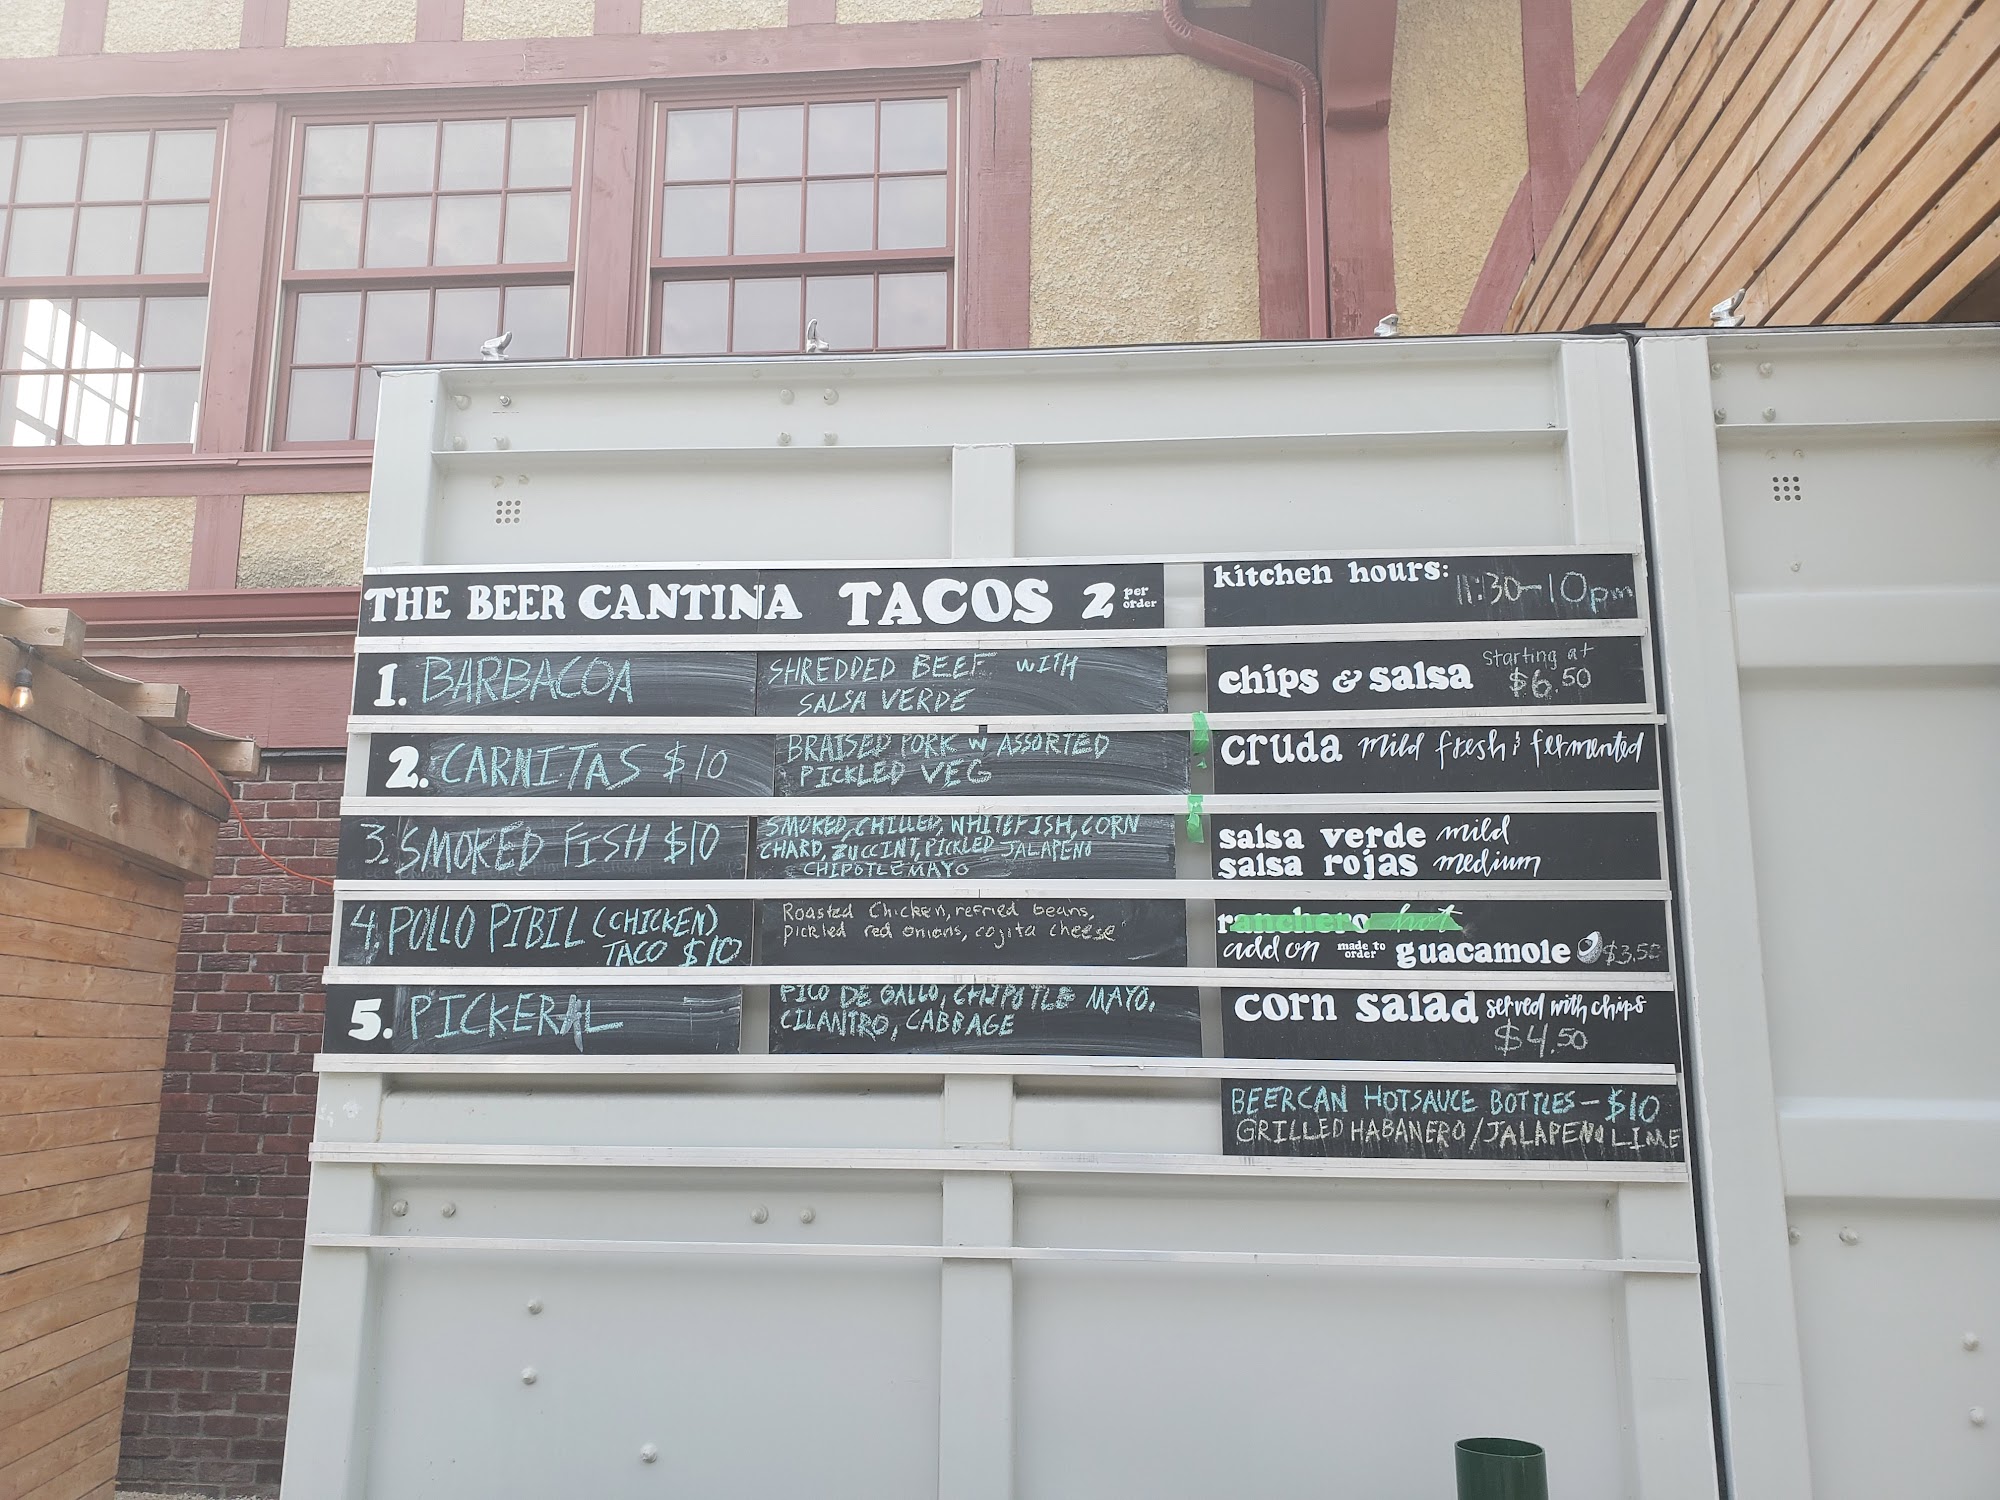 THE BEER CANTINA TACOS 2 per order
1. BARBACOA
SHREDDED BEEF WITH
SALSA VERDE
2. CARNITAS $10
BRAISED PORK W ASSORTED
PICKLED VEG
3. SMOKED FISH $10
SMOKED, CHILLED, WHITEFISH, CORN
CHARD, ZUCCINI, PICKLED JALAPENO
CHIPOTLE MAYO
4. POLLO PIBIL (CHICKEN)
TACO $10
Roasted Chicken, refried beans,
pickled red onions, cojita cheese
5. PICKERAL
PICO DE GALLO, CHIPOTLE MAYO,
CILANTRO, CABBAGE
kitchen hours: 11:30-10pm
chips & salsa starting at
$6.50
cruda mild fresh & fermented
salsa verde mild
salsa rojas medium
ranchero hot
add on made to order guacamole $3.50
corn salad served with chips
$4.50
BEERCAN HOTSAUCE BOTTLES - $10
GRILLED HABANERO/JALAPENO LIME